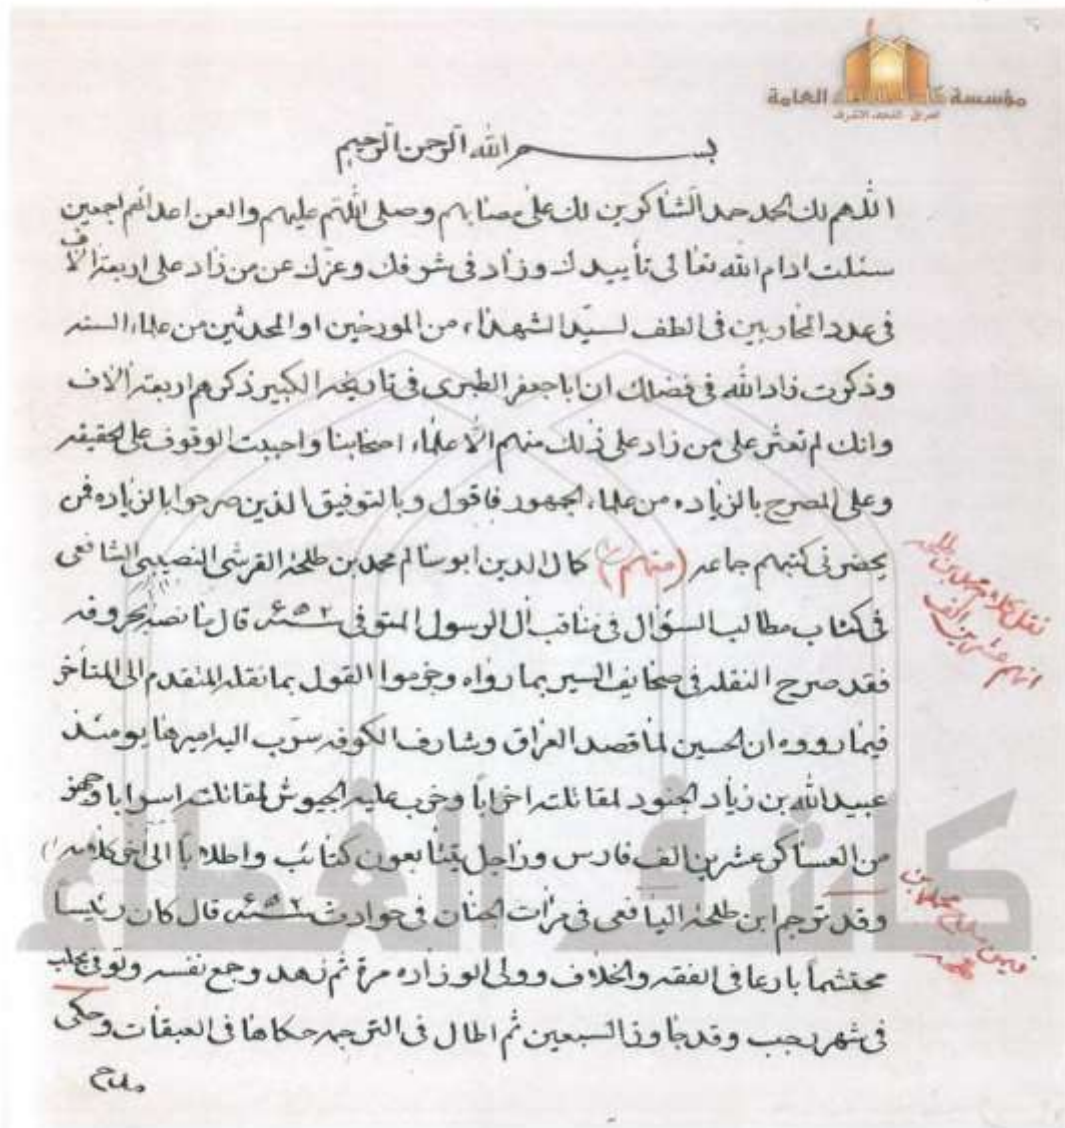 مؤسسة كاشف الغطاء العامة
العراق النجف الاشرف
بسم الله الرحمن الرحيم
اللهم لك الحمد حمد الشاكرين لك على مصابهم وصلى اللهم عليهم والعن اعدائهم اجمعين
سئلت ادام الله تعالى تأييدك وزاد في شرفك وعزك عن من زاد على اربعة الاف
في عدد المحاربين في الطف لسيد الشهداء من المورخين او المحدثين من علماء السنه
وذكرت زاد الله في فضلك ان ابا جعفر الطبرى في تاريخه الكبير ذكرهم اربعة الاف
وانك لم تعثر على من زاد على ذلك منهم الا علماء اصحابنا واحببت الوقوف على الحقيقه
وعلى المصرح بالزياده من علماء الجمهور فاقول وبالتوفيق الذين صرحوا بالزياده فمن
يحضرني كتبهم جماعه (منهم) كمال الدين ابو سالم محمد بن طلحة القرشى النصيبى الشافعى
في كتاب مطالب السؤال في مناقب ال الرسول المتوفى سنة ٦٥٢ قال ما نصه بحروفه
فقد صرح النقله في صحايف السير بما رواه وجزموا القول بما نقله المتقدم الى المتأخر
فيما رووه ان الحسين لما قصد العراق وشارف الكوفه سرب اليه اميرها يومئذ
عبيد الله بن زياد الجنود لمقاتلته احزاباً وحزب عليه الجيوش لمقاتلته اسراباً وجهز
من العساكر عشرين الف فارس وراجل يتتابعون كتائب واطلاباً الى اخر كلامه
وقد ترجم ابن طلحة اليافعى في مرات الجنان في حوادث سنة ٦٥٢ قال كان رئيسا
محتشماً بارعا في الفقه والخلاف وولى الوزاره مرة ثم زهد وجمع نفسه وتوفى بحلب
في شهر رجب وقد جاوز السبعين ثم اطال في الترجمه حكاها في العبقات وحكى
نقل كلام محمد بن طلحه
انهم عشرين الف
كاشف الغطاء